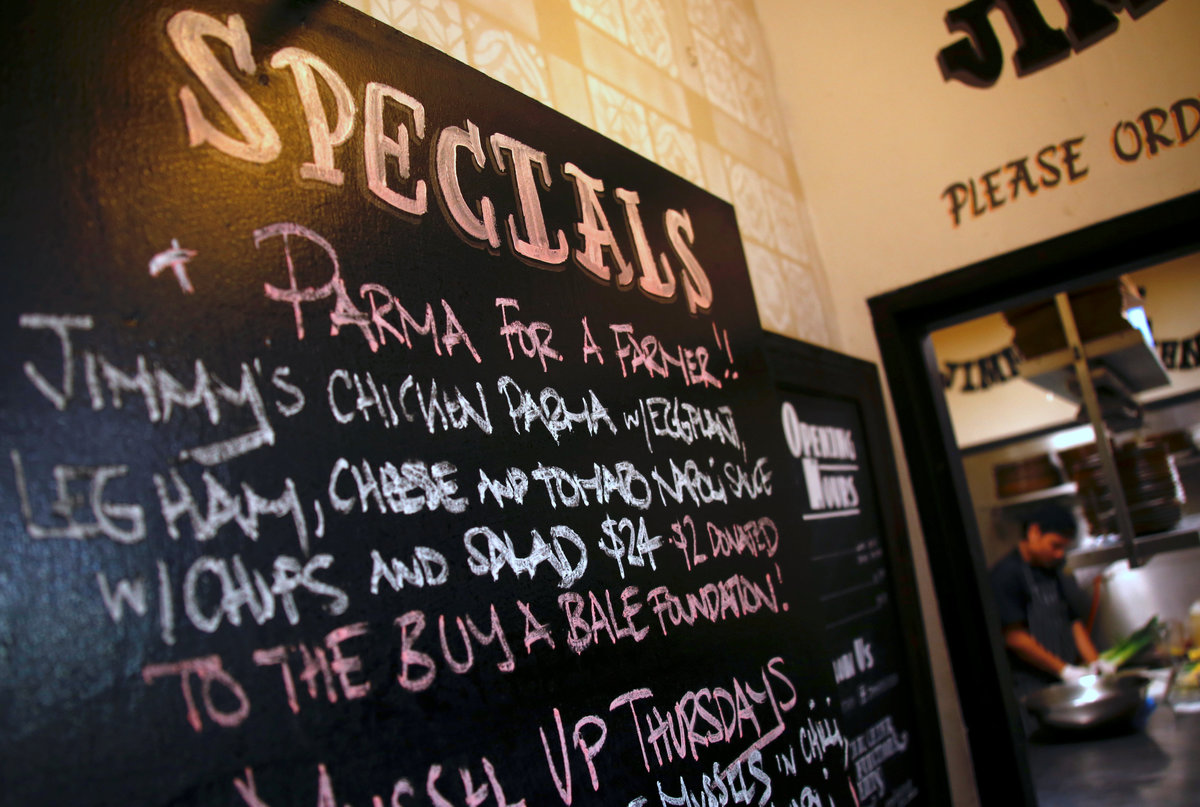 SPECIALS
PARMA FOR A FARMER!!
JIMMY'S CHICKEN PARMA W/EGGPLANT,
LEG HAM, CHEESE AND TOMATO NAPOLI SAUCE
W/CHIPS AND SALAD $24 $2 DONATED
TO THE BUY A BALE FOUNDATION!
MUSSEL UP THURSDAYS
MUSSELS IN CHILLI,
OPENING
HOURS
US
PLEASE